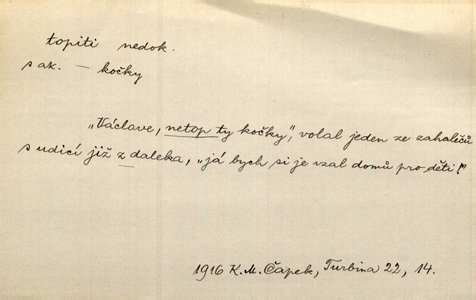 topiti nedok.
s ak. – kočky
„Václave, netop ty kočky", volal jeden ze zahalečů
s udicí již z daleka, „já bych si je vzal domů pro děti!"
1916 K. M. Čapek, Turbina 22, 14.